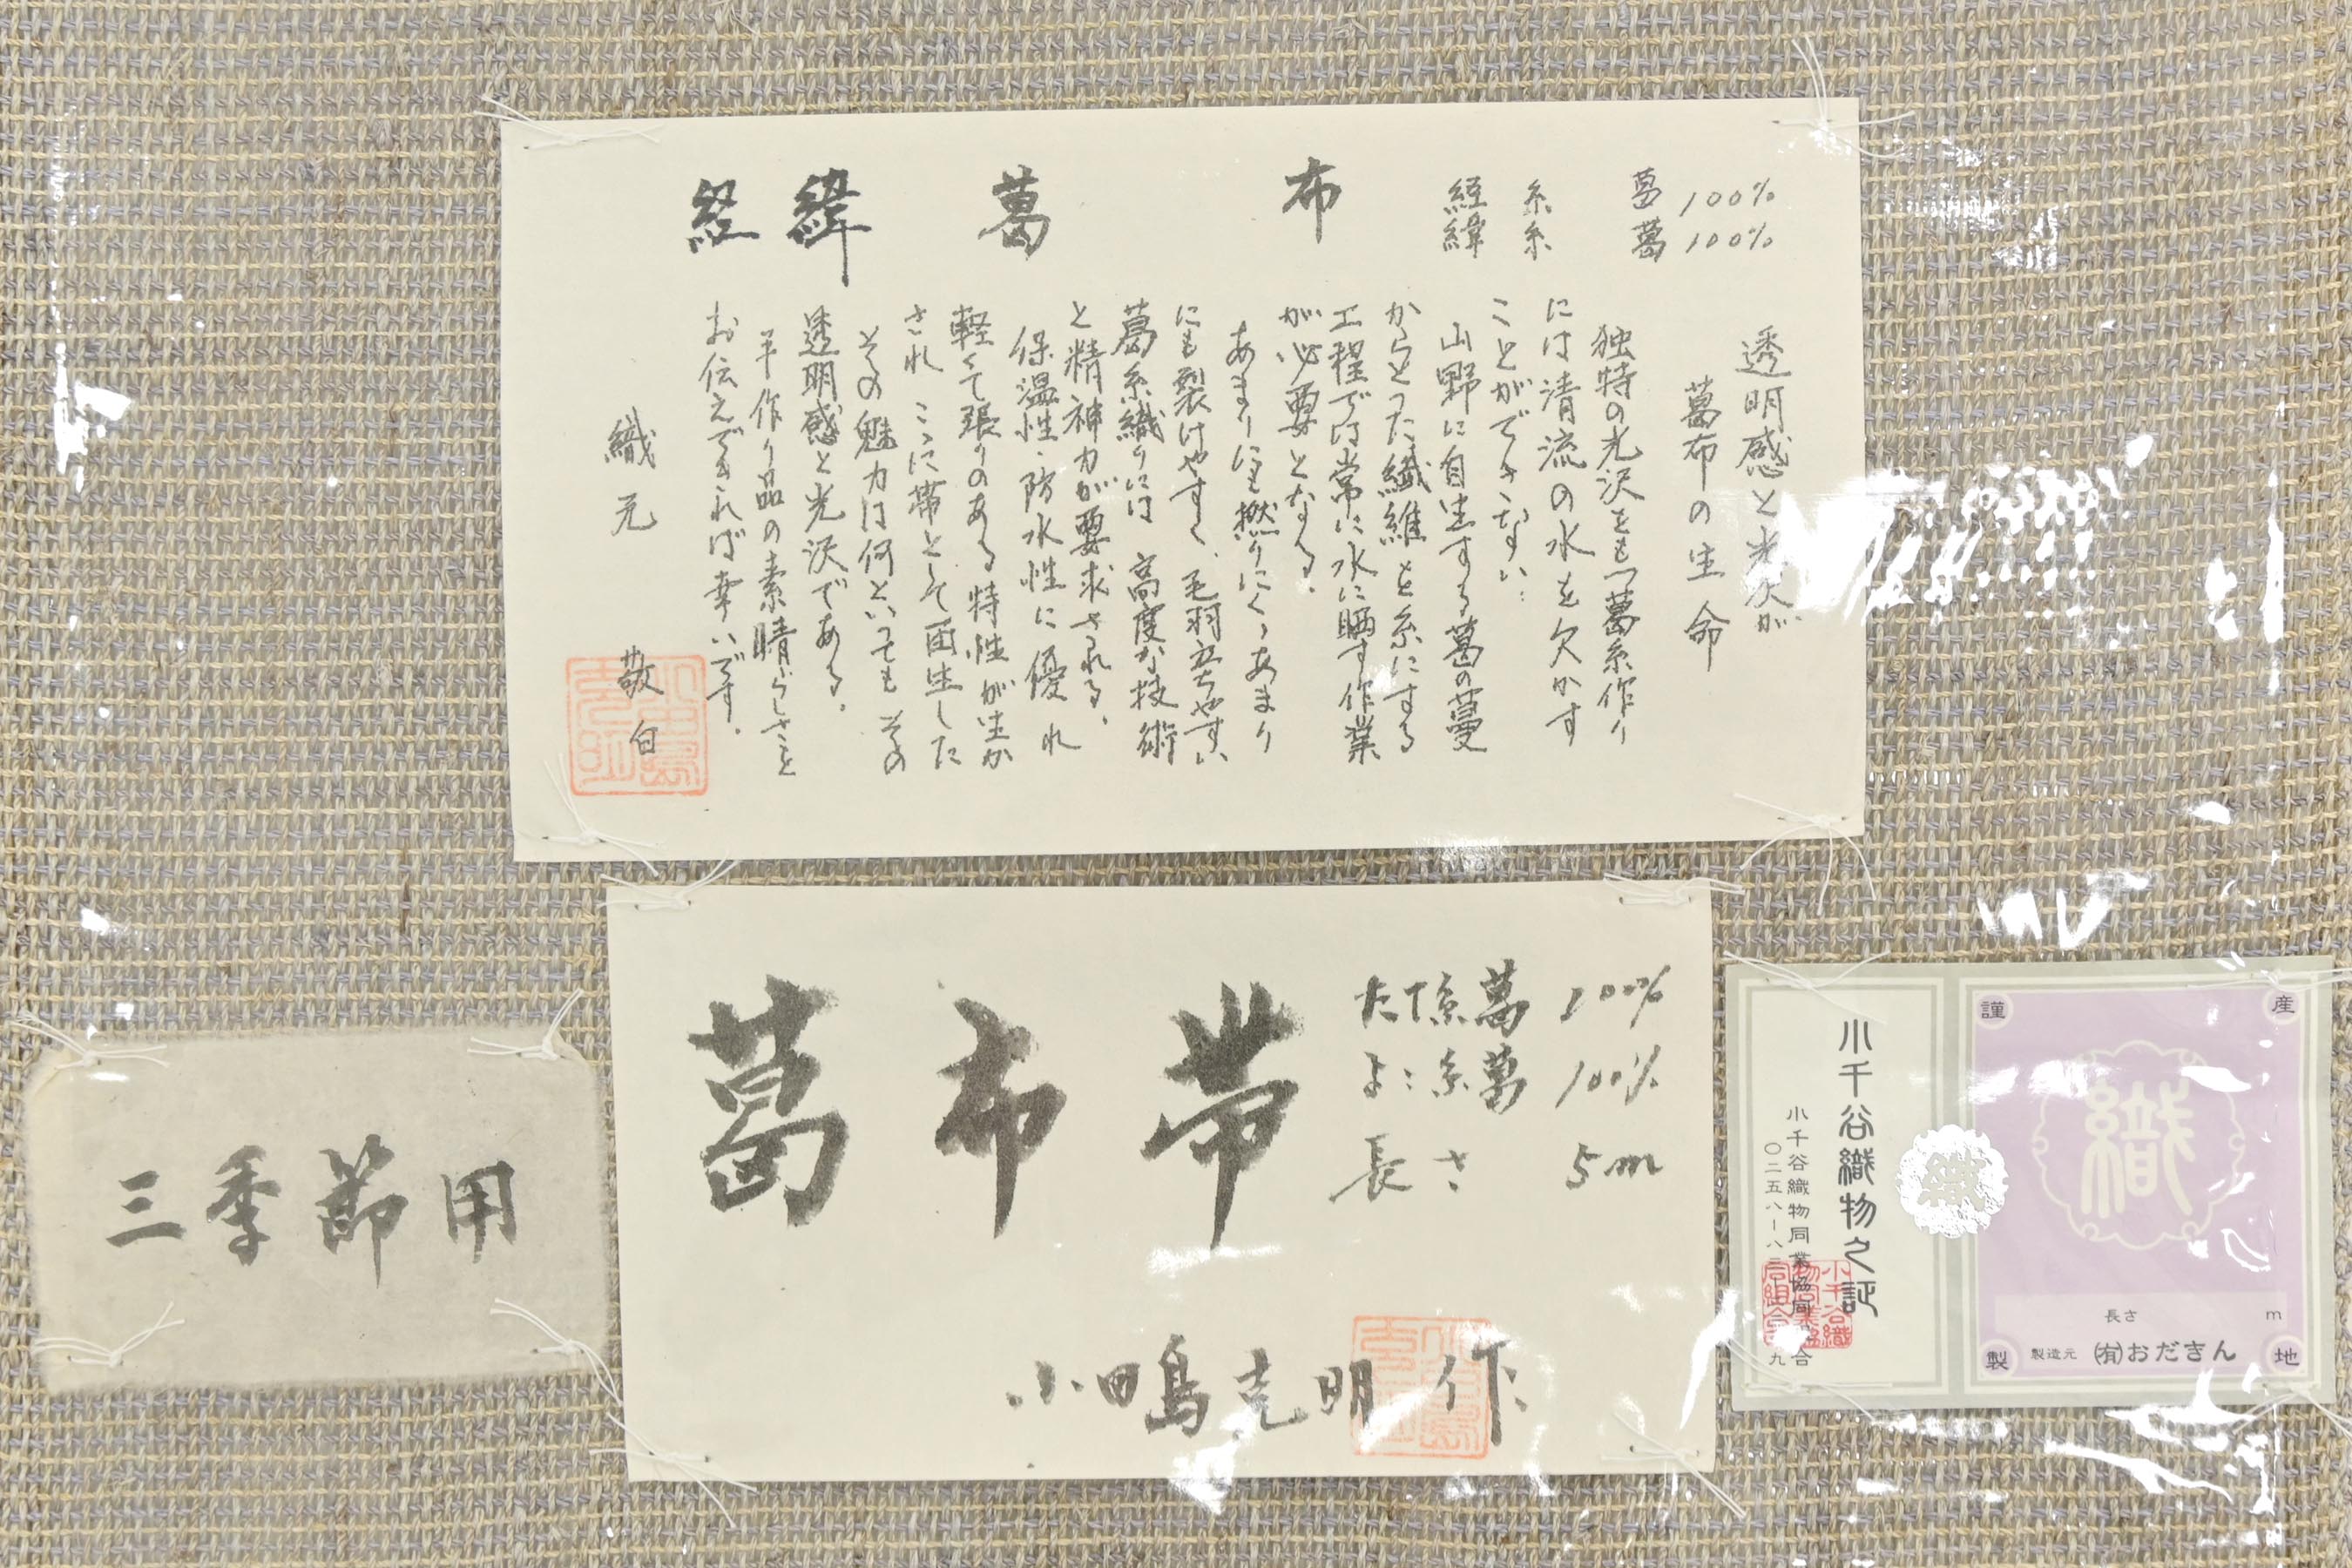 経緯葛布
経糸 葛 100%
緯糸 葛 100%
透明感と光沢が
葛布の生命
独特の光沢をもつ葛糸作り
には清流の水を欠かす
ことができない
山野に自生する葛の蔓
からとった繊維を糸にする
工程では常に水に晒す作業
が必要となる。
あまりにも撚りにくゝあまり
にも裂けやすく、毛羽立ちやすい
葛糸織りには高度な技術
と精神力が要求される、
保温性、防水性に優れ
軽くて張りのある特性が生か
され こゝに帯として再生した
その魅力は何といってもその
透明感と光沢である。
手作り品の素晴らしさを
お伝えできれば幸いです。
織元 敬白
葛布帯
たて糸葛 100%
よこ糸葛 100%
長さ 5m
小田嶋克明作
三季節用
小千谷織物之証
小千谷織物同業協同組合
謹
産
織
織
長さ m
製
製造元 ㈲おださん
地